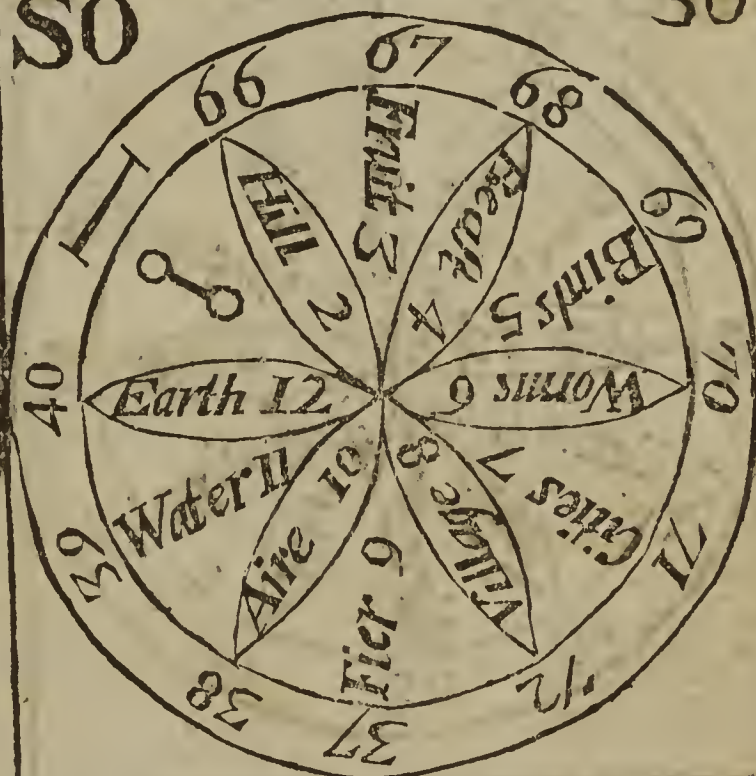 SO
66
67
68
69
70
71
72
37
38
39
40
I
Hill 2
Fruit 3
Beaſt 4
Birds 5
Worms 6
Cities 7
Village 8
Fier 9
Aire 10
Water 11
Earth 12